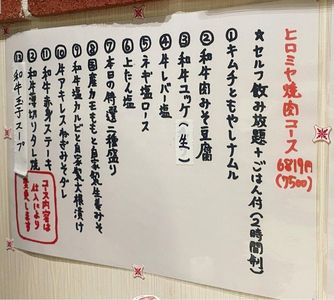 ヒロミヤ焼肉コース
6819円
(7500)
★セルフ飲み放題+ごはん付(2時間制)
①キムチともやしナムル
②和牛肉みそ豆腐
③和牛ユッケ(生)
④牛レバー塩
⑤ネギ塩ロース
⑥上たん塩
⑦本日の特選二種盛り
⑧国産カモもも自家製生姜みそ
⑨和牛塩カルビと自家製大根漬け
⑩牛アキレスねぎみそタレ
⑪和牛赤身ステーキ
⑫和牛薄切りタレ焼
⑬和牛玉子スープ
コース内容は
仕入により
変更します